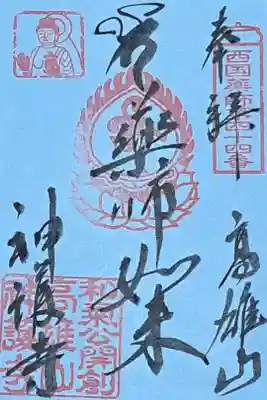 奉拝
西国薬師四十四番
高雄山
薬師如来
神護寺
和気公開創
高雄山
神護寺